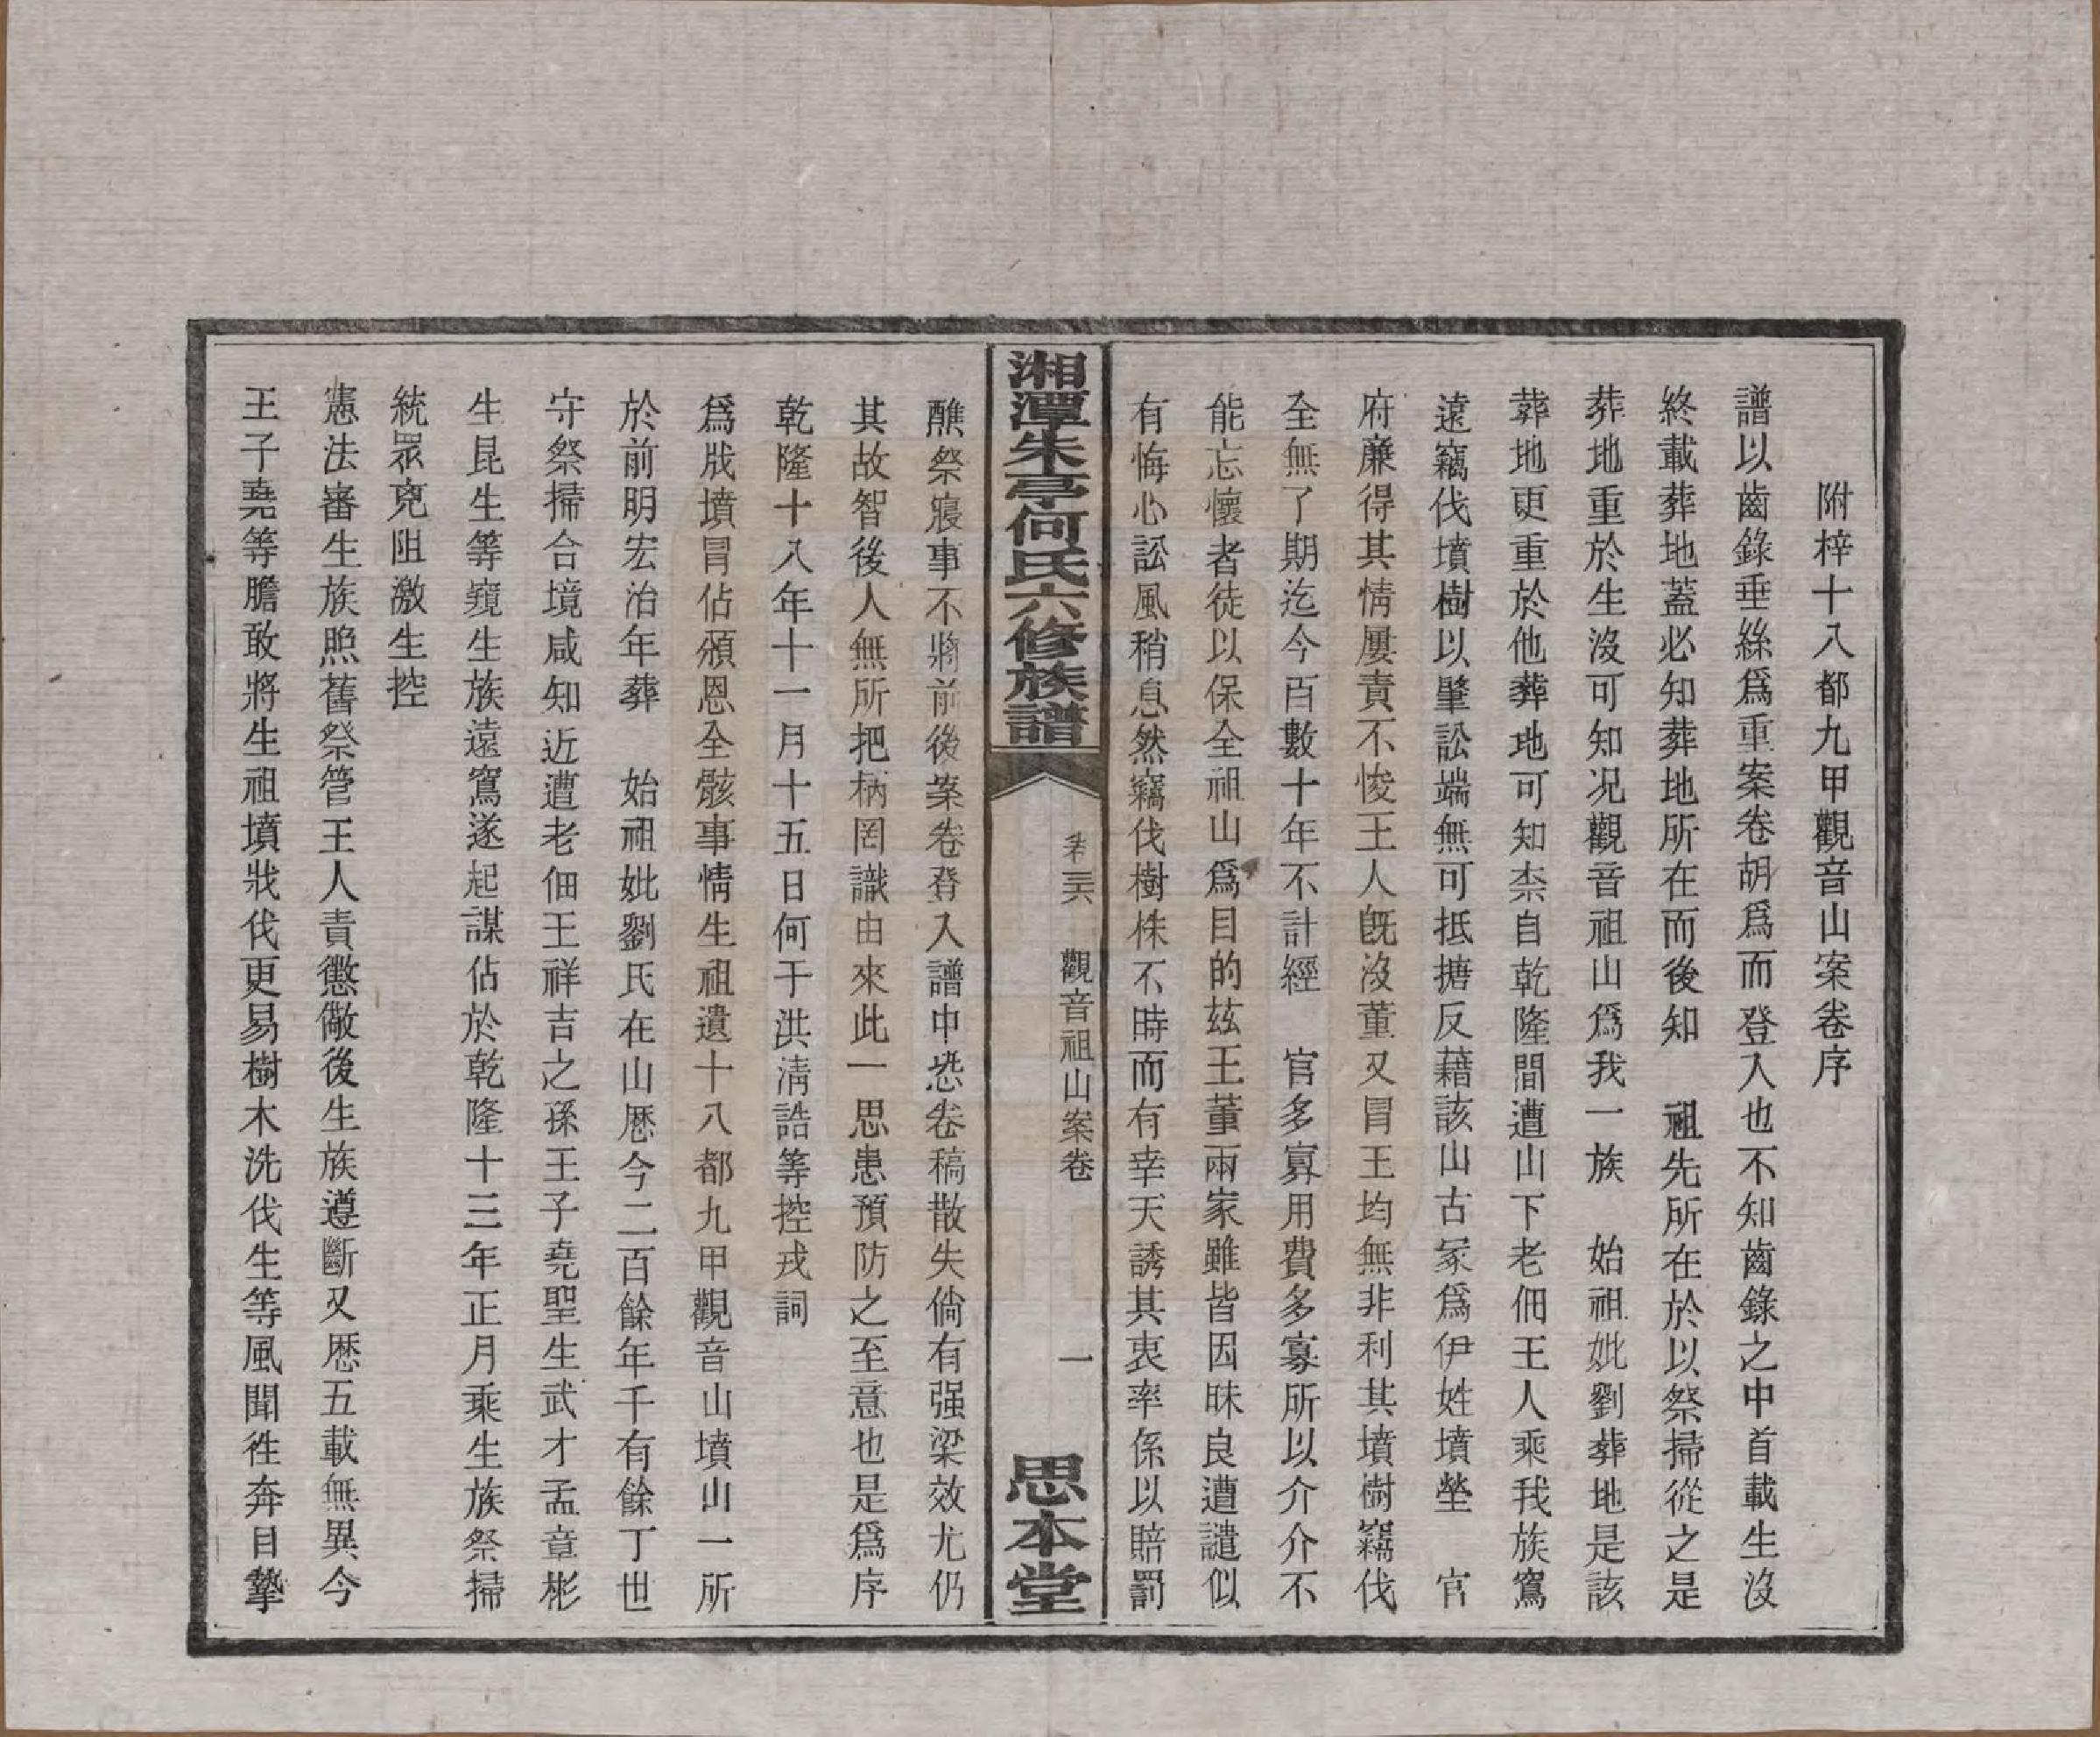 附梓十八都九甲觀音山案卷序
譜以齒錄垂絲爲重案卷胡爲而登入也不知齒錄之中首載生沒
終載葬地蓋必知葬地所在而後知　祖先所在於以祭掃從之是
葬地重於生沒可知况觀音祖山爲我一族　始祖妣劉葬地是該
葬地更重於他葬地可知柰自乾隆間遭山下老佃王人乘我族窵
遠竊伐墳樹以肇訟端無可抵搪反藉該山古冢爲伊姓墳塋　官
府廉得其情屢責不悛王人旣沒董又冒王均無非利其墳樹竊伐
全無了期迄今百數十年不計經　官多寡用費多寡所以介介不
能忘懷者徒以保全祖山爲目的玆王董兩家雖皆因昧良遭譴似
有悔心訟風稍息然竊伐樹株不時而有幸天誘其衷率係以賠罰
湘潭朱亭何氏六修族譜
卷三六　觀音祖山案卷　一
思本堂
醮祭寢事不將前後案卷登入譜中恐卷稿散失倘有强梁效尤仍
其故智後人無所把柄罔識由來此一思患預防之至意也是爲序
乾隆十八年十一月十五日何于洪淸誥等控戎詞
爲戕墳冒佔頒恩全骸事情生祖遺十八都九甲觀音山墳山一所
於前明宏治年葬　始祖妣劉氏在山歷今二百餘年千有餘丁世
守祭掃合境咸知近遭老佃王祥吉之孫王子堯聖生武才孟章彬
生昆生等窺生族遠窵遂起謀佔於乾隆十三年正月乘生族祭掃
統眾兇阻激生控
憲法審生族照舊祭管王人責懲儆後生族遵斷又歷五載無異今
王子堯等膽敢將生祖墳戕伐更易樹木洗伐生等風聞徃奔目摯